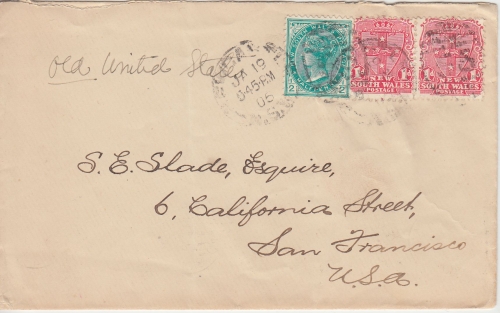 Old United Sta
JA 19
8.45 PM
05
NEW
SOUTH WALES
POSTAGE
1d
NEW
SOUTH WALES
POSTAGE
S. E. Slade, Esquire,
6, California Street,
San Francisco
U.S.A.